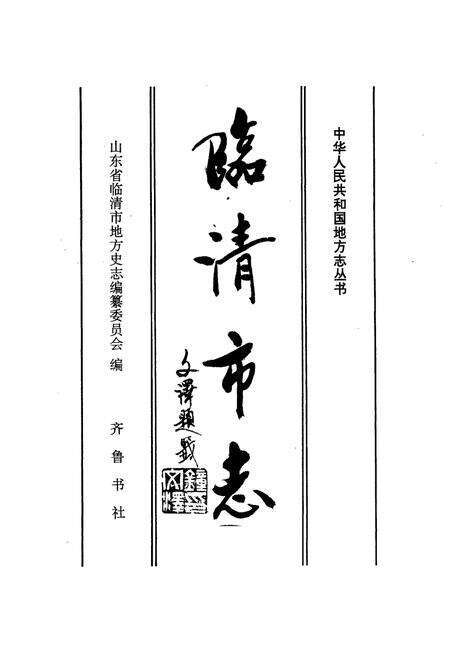 中华人民共和国地方志丛书
臨清市志
文澤題籤
山东省临清市地方史志编纂委员会 编
齐鲁书社